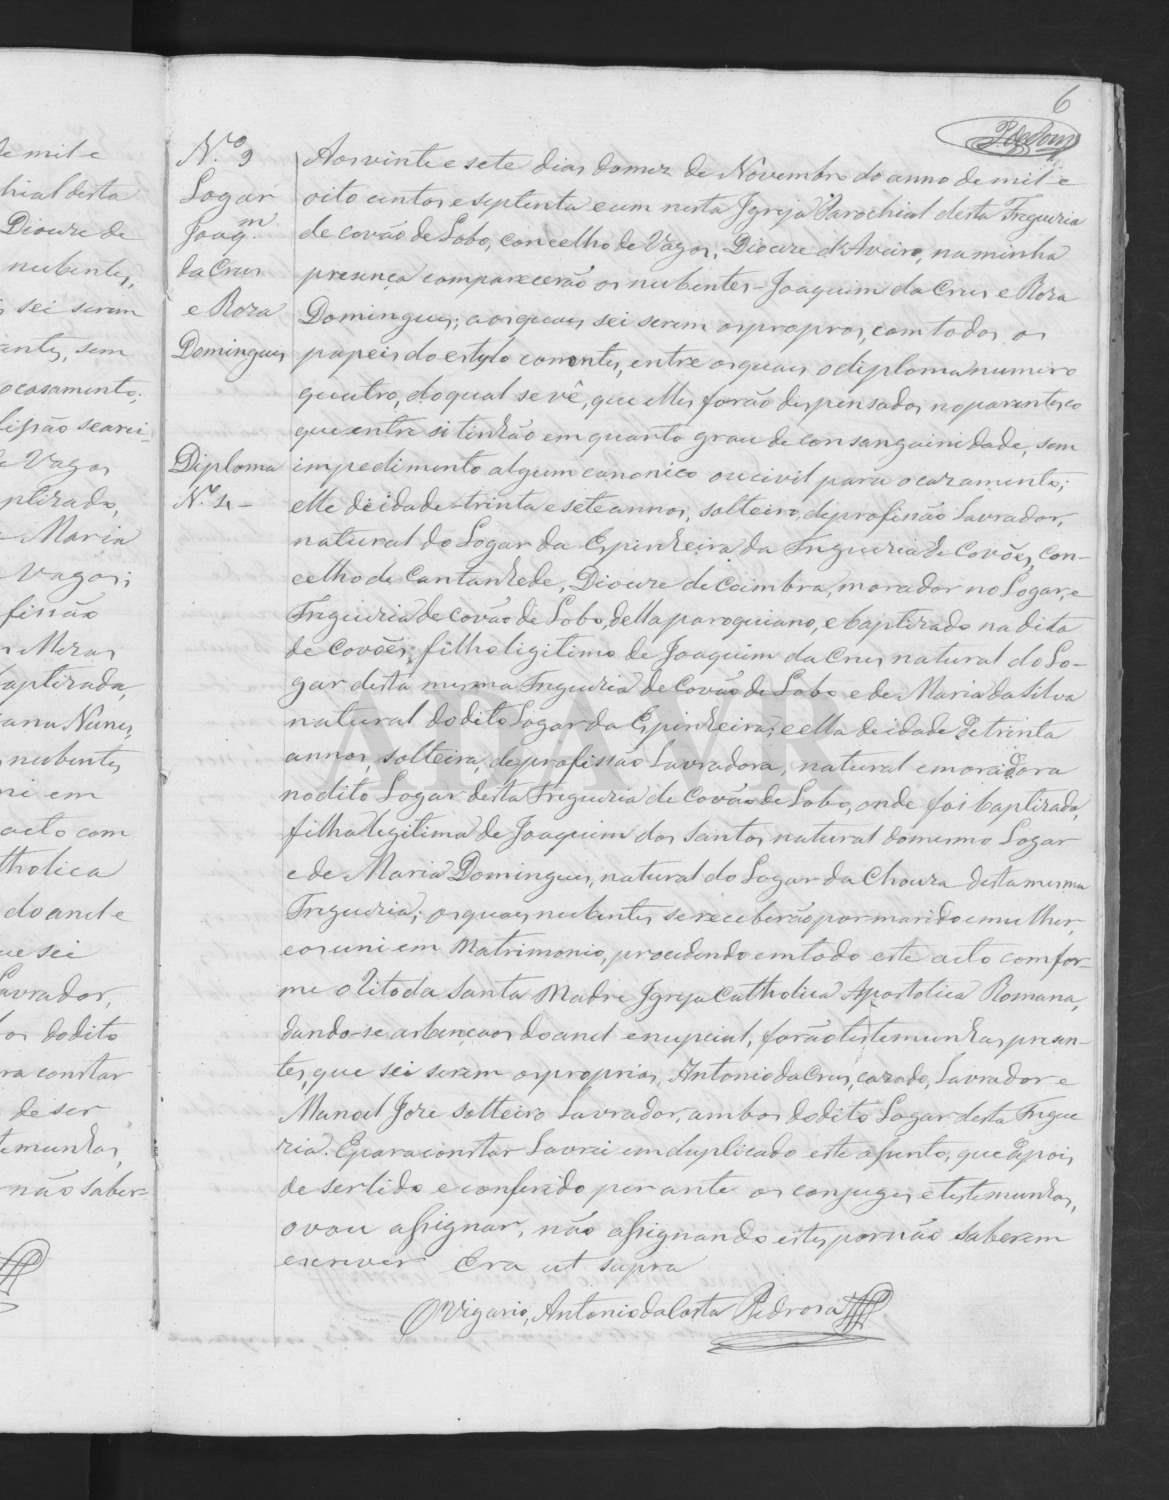 6
Pedrosa
N.º 9
Logar
Joaq.m
da Crus
e Roza
Domingues
Diploma
N.º 4 –
Aos vinte e sete dias do mez de Novembro do anno de mil e
oito centos e septenta e um nesta Igreja Parochial desta Freguezia
de Covão de Lobo, concelho de Vagos, Dioceze d'Aveiro, na minha
presença comparecerão os nubentes – Joaquim da Crus e Roza
Domingues; aos quaes sei serem os propros, com todos os
papeis do estylo correntes, entre os quaes o diploma numero
quatro, do qual se vê, que elles forão dispensados no parentesco
que entre si tinhão em quarto grau de consanguinidade, sem
impedimento algum canonico ou civil para o cazamento;
elle de idade trinta e sete annos, solteiro, de profissão Lavrador,
natural do Logar da Espinheira da Freguezia de Covões, con-
celho de Cantanhede, Diocese de Coimbra, morador no Logar, e
Freguezia de Covão de Lobo, della paroquiano, e baptizado na dita
de Covões; filho ligitimo de Joaquim da Crus natural do Lo-
gar desta mesma Freguezia de Covão de Lobo e de Maria da Silva
natural do dito Logar da Espinheira; e ella de idade de trinta
annos, solteira, de profissão Lavradora, natural e moradora
no dito Logar desta Freguezia de Covão de Lobo, onde foi baptizada,
filha legitima de Joaquim dos Santos natural do mesmo Logar
e de Maria Domingues, natural do Logar da Choura desta mesma
Freguezia; os quaes nubentes se receberão por marido e mulher,
e os uni em Matrimonio, procedendo em todo este acto comfor-
me o Rito da Santa Madre Igreja Catholica Apostolica Romana,
dando-se as bençaos do anel e nupcial, forão testemunhas presen-
tes, que sei serem os proprios, Antonio da Crus, cazado, Lavrador e
Manoel Joze solteiro Lavrador, ambos do dito Logar desta Fregue
zia. E para constar Lavrei em duplicado este assento, que depois
de ser lido e conferido perante os conjuges e testemunhas,
o vou assignar, não assignando estes por não saberem
escrever Era ut supra
O Vigario, Antonio da Costa Pedrosa